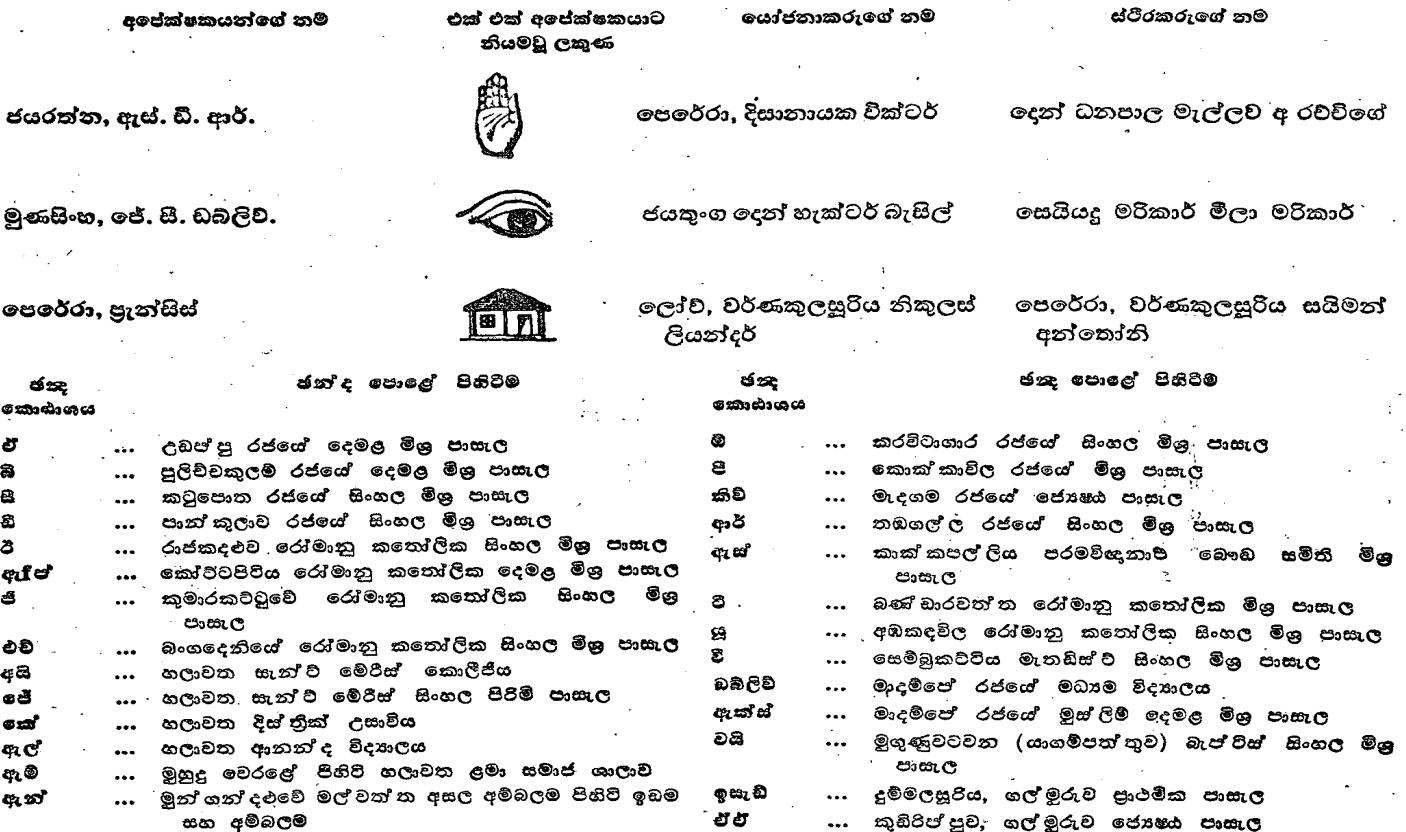 අපේක්ෂකයන්ගේ නම්
එක් එක් අපේක්ෂකයාට
නියමවූ ලකුණ
යෝජනාකරුගේ නම
ස්ථිරකරුගේ නම
ජයරත්න, ඇස්. ඩී. ආර්.
පෙරේරා, දිසානායක වික්ටර්
දොන් ධනපාල මැල්ලව අ රච්චිගේ
මුණසිංහ, ජේ. සී. ඩබ්ලිව්.
ජයතුංග දොන් හැක්ටර් බැසිල්
සෙයියදු මරිකාර් මීලා මරිකාර්
පෙරේරා, ප්‍රැන්සිස්
ලෝව්, වර්ණකුලසූරිය නිකුලස්
ලියන්දර්
පෙරේරා, වර්ණකුලසූරිය සයිමන්
අන්තෝනි
ඡන්‍ද
කොඨාශය
ඡන්ද පොළේ පිහිටීම
ඒ ... උඩප්පු රජයේ දෙමළ මිශ්‍ර පාසැල
බී ... පුලිච්චකුලම් රජයේ දෙමළ මිශ්‍ර පාසැල
සී ... කටුපොත රජයේ සිංහල මිශ්‍ර පාසැල
ඩී ... පාන්කුලාව රජයේ සිංහල මිශ්‍ර පාසැල
ඊ ... රාජකදළුව රෝමානු කතෝලික සිංහල මිශ්‍ර පාසැල
ඇෆ් ... කෝට්ටපිටිය රෝමානු කතෝලික දෙමළ මිශ්‍ර පාසැල
ජී ... කුමාරකට්ටුවේ රෝමානු කතෝලික සිංහල මිශ්‍ර
පාසැල
එච් ... බංගදෙනියේ රෝමානු කතෝලික සිංහල මිශ්‍ර පාසැල
අයි ... හලාවත සැන්ට් මේරීස් කොලීජිය
ජේ ... හලාවත සැන්ට් මේරීස් සිංහල පිරිමි පාසැල
කේ ... හලාවත දිස්ත්‍රික් උසාවිය
ඇල් ... හලාවත ආනන්ද විද්‍යාලය
ඇම් ... මුහුදු වෙරළේ පිහිටි හලාවත ළමා සමාජ ශාලාව
ඇන් ... මුන්ගන්දළුවේ මල්වත්ත අසල අම්බලම පිහිටි ඉඩම
සහ අම්බලම
ඡන්‍ද
කොඨාශය
ඡන්‍ද පොළේ පිහිටීම
ඕ ... කරවිටාගාර රජයේ සිංහල මිශ්‍ර පාසැල
පී ... කොක්කාවිල රජයේ මිශ්‍ර පාසැල
කිව් ... මැදගම රජයේ ජ්‍යෙෂ්ඨ පාසැල
ආර් ... තඹගල්ල රජයේ සිංහල මිශ්‍ර පාසැල
ඇස් ... කාක්කපල්ලිය පරමවිඥානාර්ථ බෞඬ සමිති මිශ්‍ර
පාසැල
ටී ... බණ්ඩාරවත්ත රෝමානු කතෝලික මිශ්‍ර පාසැල
යූ ... අඹකඳවිල රෝමානු කතෝලික සිංහල මිශ්‍ර පාසැල
වී ... සෙම්බුකට්ටිය මැතඩිස්ට් සිංහල මිශ්‍ර පාසැල
ඩබ්ලිව් ... මාදම්පේ රජයේ මධ්‍යම විද්‍යාලය
ඇක්ස් ... මාදම්පේ රජයේ මුස්ලිම් දෙමළ මිශ්‍ර පාසැල
වයි ... මුගුණුවටවන (යාගම්පත්තුව) බැප්ටිස් සිංහල මිශ්‍ර
පාසැල
ඉසැඩ් ... දුම්මලසූරිය, ගල්මුරුව ප්‍රාථමික පාසැල
ඒඒ ... කුඩිරිප්පුව, ගල්මුරුව ජ්‍යෙෂ්ඨ පාසැල